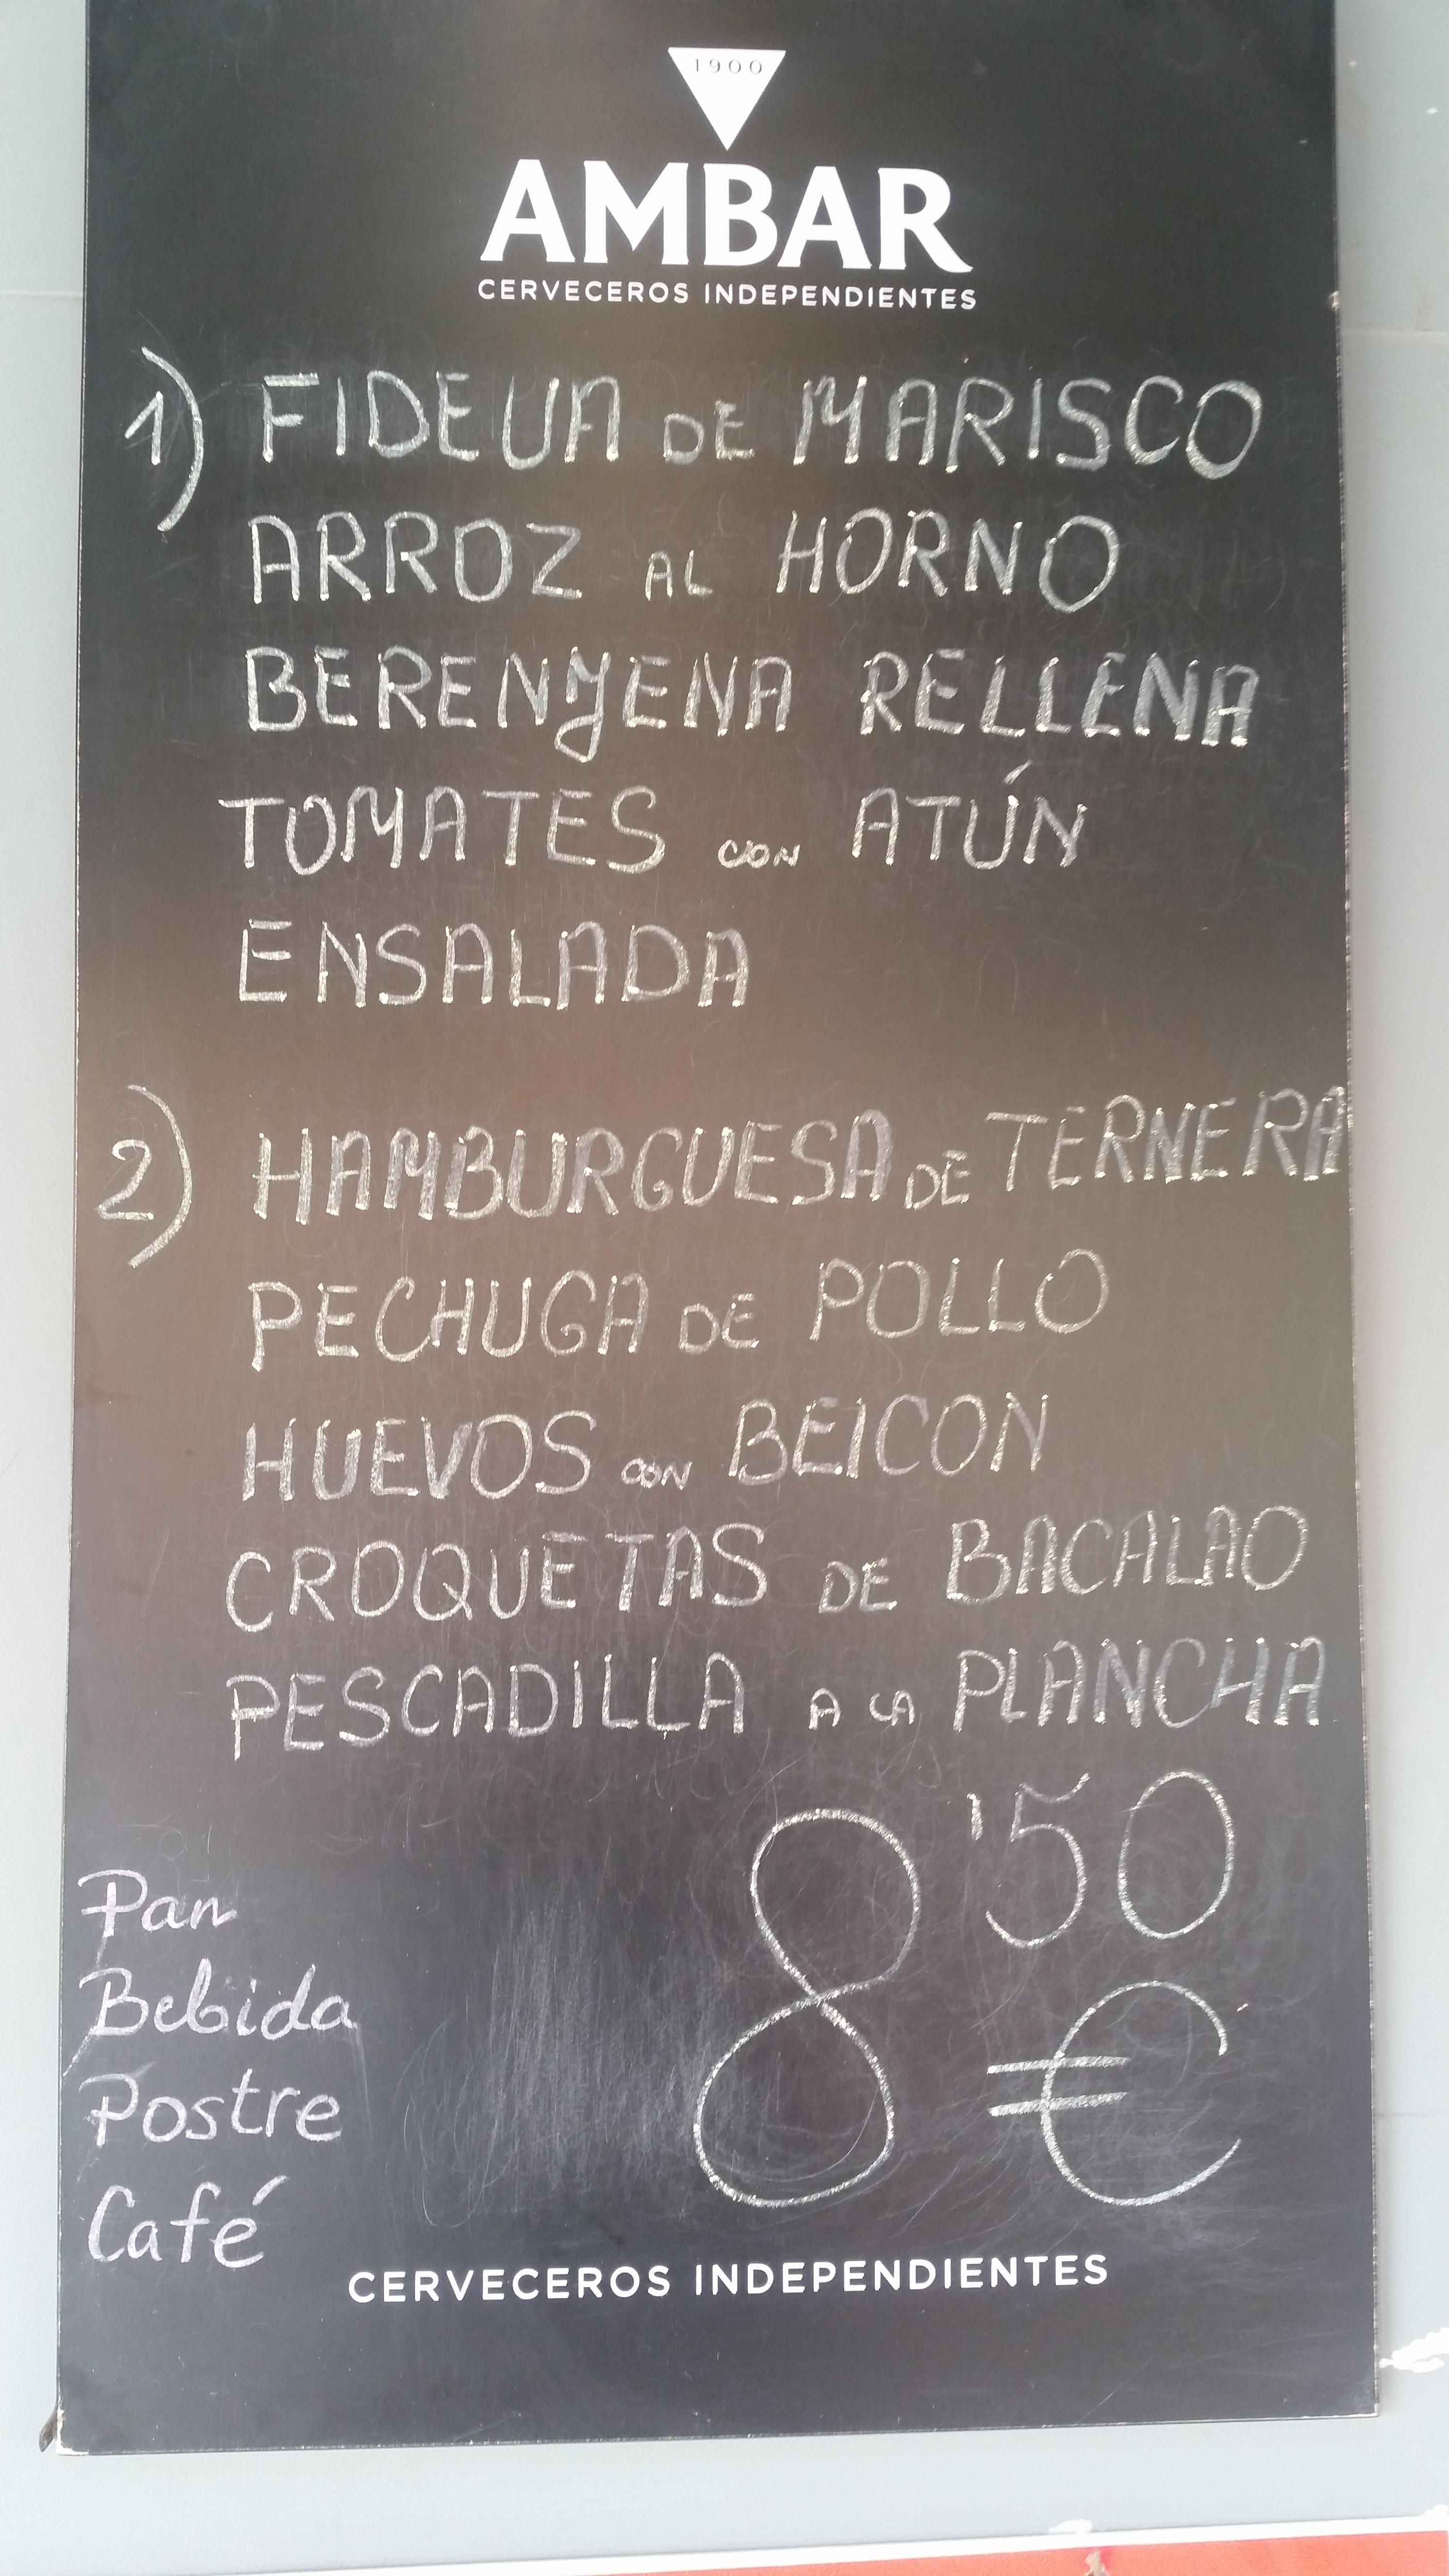 1900
AMBAR
CERVECEROS INDEPENDIENTES
1) FIDEUA DE MARISCO
ARROZ AL HORNO
BERENYENA RELLENA
TOMATES CON ATÚN
ENSALADA
2) HAMBURGUESA DE TERNERA
PECHUGA DE POLLO
HUEVOS CON BEICON
CROQUETAS DE BACALAO
PESCADILLA A LA PLANCHA
8'50 €
Pan
Bebida
Postre
Café
CERVECEROS INDEPENDIENTES